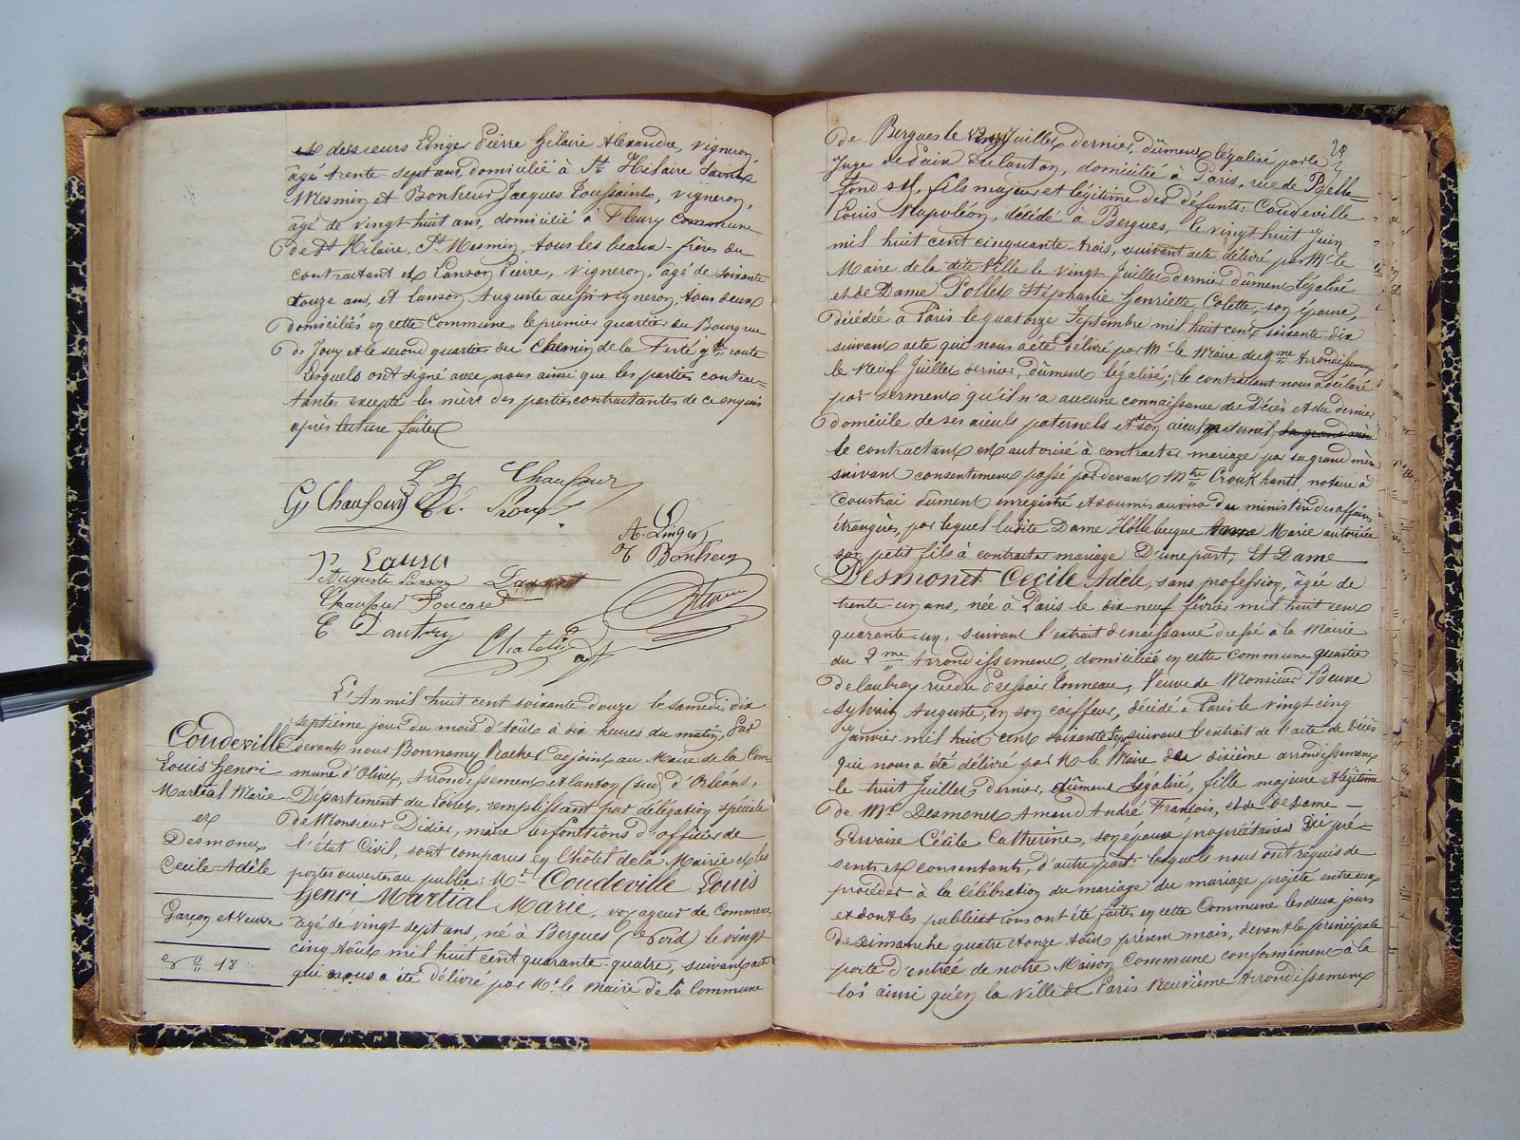 et des sieurs Linger Pierre Hilaire Alexandre, vigneron,
âgé trente sept ans, domicilié à St Hilaire Saint
Mesmin et Bonheur Jacques Toussaint, vigneron,
âgé de vingt huit ans, domicilié à Fleury Commune
de St Hilaire St Mesmin, tous les beaux-frères du
contractant et Lanson Pierre, vigneron, âgé de soixante
douze ans, et Lanson Auguste aussi vigneron, tous deux
domiciliés en cette Commune, le premier quartier du Bourg rue
de Jouy et le second quartier du Chemin de la Ferté
Lesquels ont signé avec nous ainsi que les parties contrac=
tantes excepté les mère des parties contractantes de ce enquis
après lecture faite
Chaufour
G. Chaufour
A. Linger
Bonheur
P Lanson
Auguste Lanson
Chaufour Foucard
E Dautry
L'An mil huit cent soixante douze le samedi dix
septième jour du mois d'Août à dix heures du matin, Par
devant nous Bonnamy Rachet adjoint au Maire de la Com
mune d'Olivet, Arrondissement et Canton (sud) d'Orléans,
Département du Loiret, remplissant par délégation spéciale
de Monsieur Didier, maire les fonctions d'officier de
l'état Civil, sont comparus en l'hôtel de la Mairie et les
portes ouvertes au public: Mr Coudeville Louis
Henri Martial Marie, voyageur de Commerce
âgé de vingt sept ans, né à Bergues (Nord) le vingt
cinq Août mil huit cent quarante quatre, suivant acte
qui nous a été délivré par Mr le Maire de la Commune
Coudeville
Louis Henri
Martial Marie
et
Desmonet
Cecile Adèle
Garçon et Veuve
No 18
29
de Bergues le vingt Juillet dernier, dûment légalisé par le
Juge de Paix du Canton, domicilié à Paris, rue de Belle=
fond, fils majeur et légitime des défunts: Coudeville
Louis Napoléon, décédé à Bergues, le vingt huit Juin
mil huit cent cinquante-trois, suivant acte délivré par Mr le
Maire de la dite Ville le vingt Juillet dernier dûment légalisé
et de Dame Pollet Stéphanie Henriette Colette, son épouse,
décédée à Paris le quatorze Septembre mil huit cent soixante dix
suivant acte qui nous a été délivré par Mr le Maire du 9me Arrondissement
le Neuf Juillet dernier, dûment légalisé; le contractant nous a déclaré
par serment qu'il n'a aucune connaissance du Décès et du dernier
domicile de ses aïeuls paternels et son aïeul maternel, sa grand mère
le contractant est autorisé à contracter mariage par sa grand mère
suivant consentement passé par devant Mtre notaire à
Courtrai dûment enregistré et soumis au visa du ministère des affaires
étrangères, par lequel ladite Dame Hollebecque Marie autorise
son petit fils à contracter mariage D'une part; Et Dame
Desmonet Cecile Adèle, sans profession, âgée de
trente un ans, née à Paris le dix neuf février mil huit cent
quarante-un, suivant l'extrait de naissance dressé à la Mairie
du 2me Arrondissement, domiciliée en cette Commune quartier
de Caubray rue du Pressoir Tonneau, Veuve de Monsieur Beuve
Sylvain Auguste, en son coiffeur, décédé à Paris le vingt cinq
Janvier mil huit cent soixante suivant l'extrait de l'acte de décès
qui nous a été délivré par Mr le Maire du dixième arrondissement
le huit Juillet dernier, dûment légalisé, fille majeure et légitime
de Mr Desmonet Amand André François, et de De Dame
Gervaise Cécile Catherine, son épouse propriétaires Ici pré=
sents et consentants, d'autre part: lesquels nous ont requis de
procéder à la célébration du mariage du mariage projeté entre eux
et dont les publications ont été faites en cette Commune les deux jours
de Dimanche quatre et onze Août présent mois, devant la principale
porte d'entrée de notre Maison Commune conformément à la
loi ainsi qu'en la Ville de Paris Neuvième Arrondissement